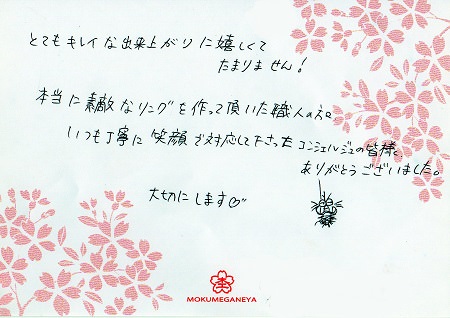 とてもキレイな出来上がりに嬉しくて
たまりません!
本当に素敵なリングを作って頂いた職人の方。
いつも丁寧に笑顔で対応して下さったコンシェルジュの皆様、
ありがとうございました。
大切にします♡
MOKUMEGANEYA